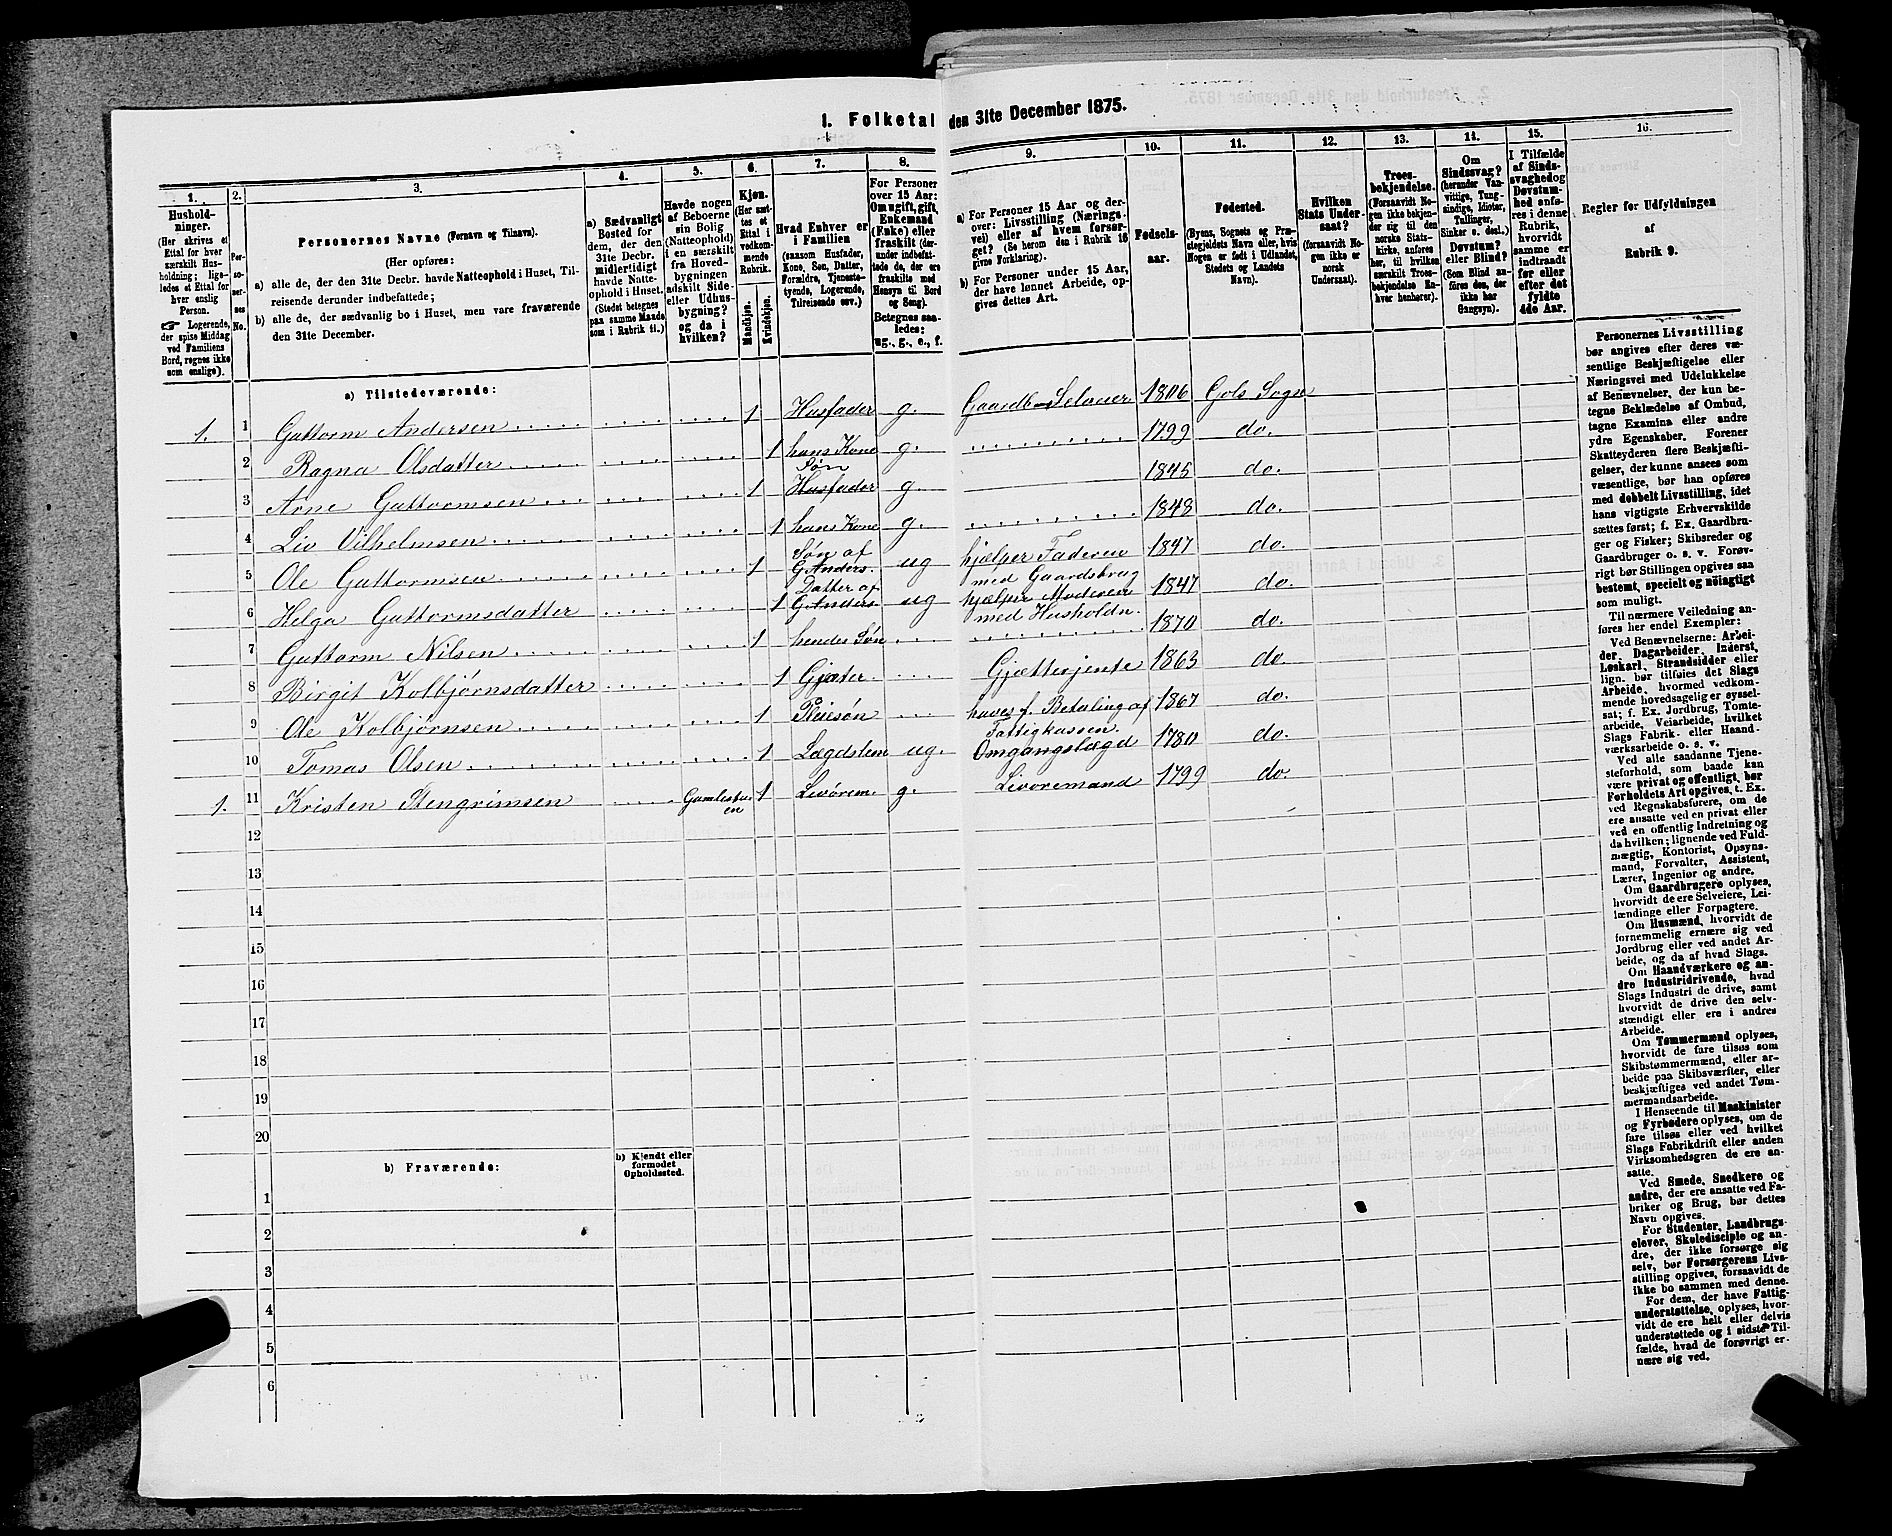 1. Folketal den 31te December 1875.
1. 2. 3. 4. 5. 6. 7. 8. 9. 10. 11. 12. 13. 14. 15. 16.
Hushold-
ninger.
(Her skrives et
Ettal for hver
særskilt Hus-
holdning; lige-
ledes et Ettal for
hver enslig
Person.
☞ Logerende,
der spise Middag
ved Familiens
Bord, regnes ikke
som enslige).
Per-
so-
ner-
nes
No.
Personernes Navne (Fornavn og Tilnavn).
(Her opføres:
a) alle de, der den 31te Decbr. havde Natteophold i Huset, Til-
reisende derunder indbefattede;
b) alle de, der sædvanlig bo i Huset, men vare fraværende
den 31te December.
a) Sædvanligt
Bosted for
dem, der den
31te Decbr.
midlertidigt
havde Natte-
ophold i Huset.
(Stedet betegnes
paa samme Maade
som i Rubrik 11.)
Havde nogen
af Beboerne
sin Bolig
(Natteophold)
i en særskilt
fra Hoved-
bygningen
adskilt Side-
eller Udhus-
bygning?
og da i
hvilken?
Kjøn.
(Her sæt-
tes et
Ettal i
vedkom-
mende
Rubrik.
Mandkjøn.
Kvindekjøn.
Hvad Enhver er
i Familien
(saasom Husfader,
Kone, Søn, Datter,
Forældre, Tjeneste-
tyende, Logerende,
Tilreisende osv.)
For Personer
over 15 Aar:
Om ugift, gift,
Enkemand
(Enke) eller
fraskilt (der-
under indbefat-
tede de, der ere
fraskilte med
Hensyn til Bord
og Seng).
Betegnes saa-
ledes:
ug., g., e., f.
a) For Personer 15 Aar og der-
over: Livsstilling (Nærings-
vei) eller af hvem forsør-
get? (Se herom den i Rubrik 16
givne Forklaring).
b) For Personer under 15 Aar,
der have lønnet Arbeide, op-
gives dettes Art.
Fødsels-
aar.
Fødested.
(Byens, Sognets og Præ-
stegjeldets Navn eller, hvis
Nogen er født i Udlandet,
Stedets og Landets
Navn).
Hvilken
Stats Under-
saat?
(forsaavidt No-
gen ikke er
norsk
Undersaat).
Troes-
bekjendelse.
(Forsaavidt No-
gen ikke bekjen-
der sig til den
norske Stats-
kirke, anføres
her, til hvilken
særskilt Troes-
bekjendelse En-
hver henhører).
Om
Sindssvag?
(herunder Van-
vittige, Tung-
sindige, Idioter,
Tullinger,
Sinker o. desl.)
Døvstum?
eller Blind?
(Som Blind an-
føres den, der
ikke har
Gangsyn).
I Tilfælde
af Sinds-
svaghed og
Døvstum-
hed anfø-
res i denne
Rubrik,
hvorvidt
samme er
indtraadt
før eller
efter det
fyldte
4de Aar.
Regler for Udfyldningen
af
Rubrik 9.
a) Tilstedeværende:
1. 1 Guttorm Andersen 1 Husfader g. Gaardb-Selveier 1806 Gols Sogn
2 Ragna Olsdatter 1 hans Kone g. 1799 do.
3 Arne Guttormsen 1 Søn Husfader g. 1845 do.
4 Liv Vilhelmsen 1 hans Kone g. 1848 do.
5 Ole Guttormsen 1 Søn af G. Anders. ug hjælper Faderen med Gaardsbrug 1847 do.
6 Helga Guttormsdatter 1 Datter af G. Anders. ug hjælper Moderen med Husholdn. 1847 do.
7 Guttorm Nilsen 1 hendes Søn 1870 do.
8 Birgit Kolbjørnsdatter 1 Gjæter Gjætterjente 1863 do.
9 Ole Kolbjørnsen 1 Pleiesøn haves f. Betaling af Fattigkassen. 1867 do.
10 Tomas Olsen 1 Lægdslem ug. Omgangslægd 1780 do.
1. 11 Kristen Stengrimsen 1 Livørem. g. Livoremand 1799 do
12
13
14
15
16
17
18
19
20
b) Fraværende:
b) Kjendt eller
formodet
Opholdssted.
1
2
3
4
5
6
Personernes Livsstilling
bør angives efter deres væ-
sentlige Beskjæftigelse eller
Næringsvei med Udelukkelse
af Benævnelser, der kun be-
tegne Beklædelse af Ombud,
tagne Examina eller andre
ydre Egenskaber. Forener
Skatteyderen flere Beskjæfti-
gelser, der kunne ansees som
væsentlige, bør han opføres
med dobbelt Livsstilling, idet
hans vigtigste Erhvervskilde
sættes først; f. Ex. Gaardbru-
ger og Fisker; Skibsreder og
Gaardbruger o. s. v. Forøv-
rigt bør Stillingen opgives saa
bestemt, specielt og nøiagtigt
som muligt.
Til nærmere Veiledning an-
føres her endel Exempler:
Ved Benævnelserne: Arbei-
der, Dagarbeider, Inderst,
Løskarl, Strandsidder eller
lign. bør tilføies det Slags
Arbeide, hvormed vedkom-
mende hovedsagelig er syssel-
sat; f. Ex. Jordbrug, Tomte-
arbeide, Veiarbeide, hvilket
Slags Fabrik- eller Haand-
værksarbeide o. s. v.
Ved alle saadanne Tjene-
steforhold, som baade kan
være privat og offentligt, bør
Forholdets Art opgives, t. Ex.
ved Regnskabsførere, om de
ere ansatte ved en privat eller
ved en offentlig Indretning og
da hvilken; lignende ved Fuld-
mægtig, Kontorist, Opsyns-
mand, Forvalter, Assistent,
Lærer, Ingeniør og andre.
Om Gaardbrugere oplyses,
hvorvidt de ere Selveiere, Lei-
lændinge eller Forpagtere.
Om Husmænd, hvorvidt de
fornemmelig ernære sig ved
Jordbrug eller ved andet Ar-
beide, og da af hvad Slags.
Om Haandværkere og an-
dre Industridrivende, hvad
Slags Industri de drive, samt
hvorvidt de drive den selv-
stændigt eller ere i andres
Arbeide.
Om Tømmermænd oplyses,
hvorvidt de fare tilsøs som
Skibstømmermænd, eller ar-
beide paa Skibsværfter, eller
beskjæftiges ved andet Tøm-
mermandsarbeide.
I Henseende til Maskinister
og Fyrbødere oplyses, om de
fare tilsøs eller ved hvilket
Slags Fabrikdrift eller anden
Virksomhedsgren de ere an-
satte.
Ved Smede, Snedkere og
andre, der ere ansatte ved Fa-
briker og Brug, bør dettes
Navn opgives.
For Studenter, Landbrugs-
elever, Skoledisciple og an-
dre, der ikke forsørge sig
selv, bør Forsørgerens Livs-
stilling opgives, forsaavidt de
ikke bo sammen med denne.
For dem, der have Fattig-
understøttelse, oplyses, hvor-
vidt de ere helt eller delvis
understøttede og i sidste Til-
fælde, hvad de forøvrigt er-
nære sig ved.